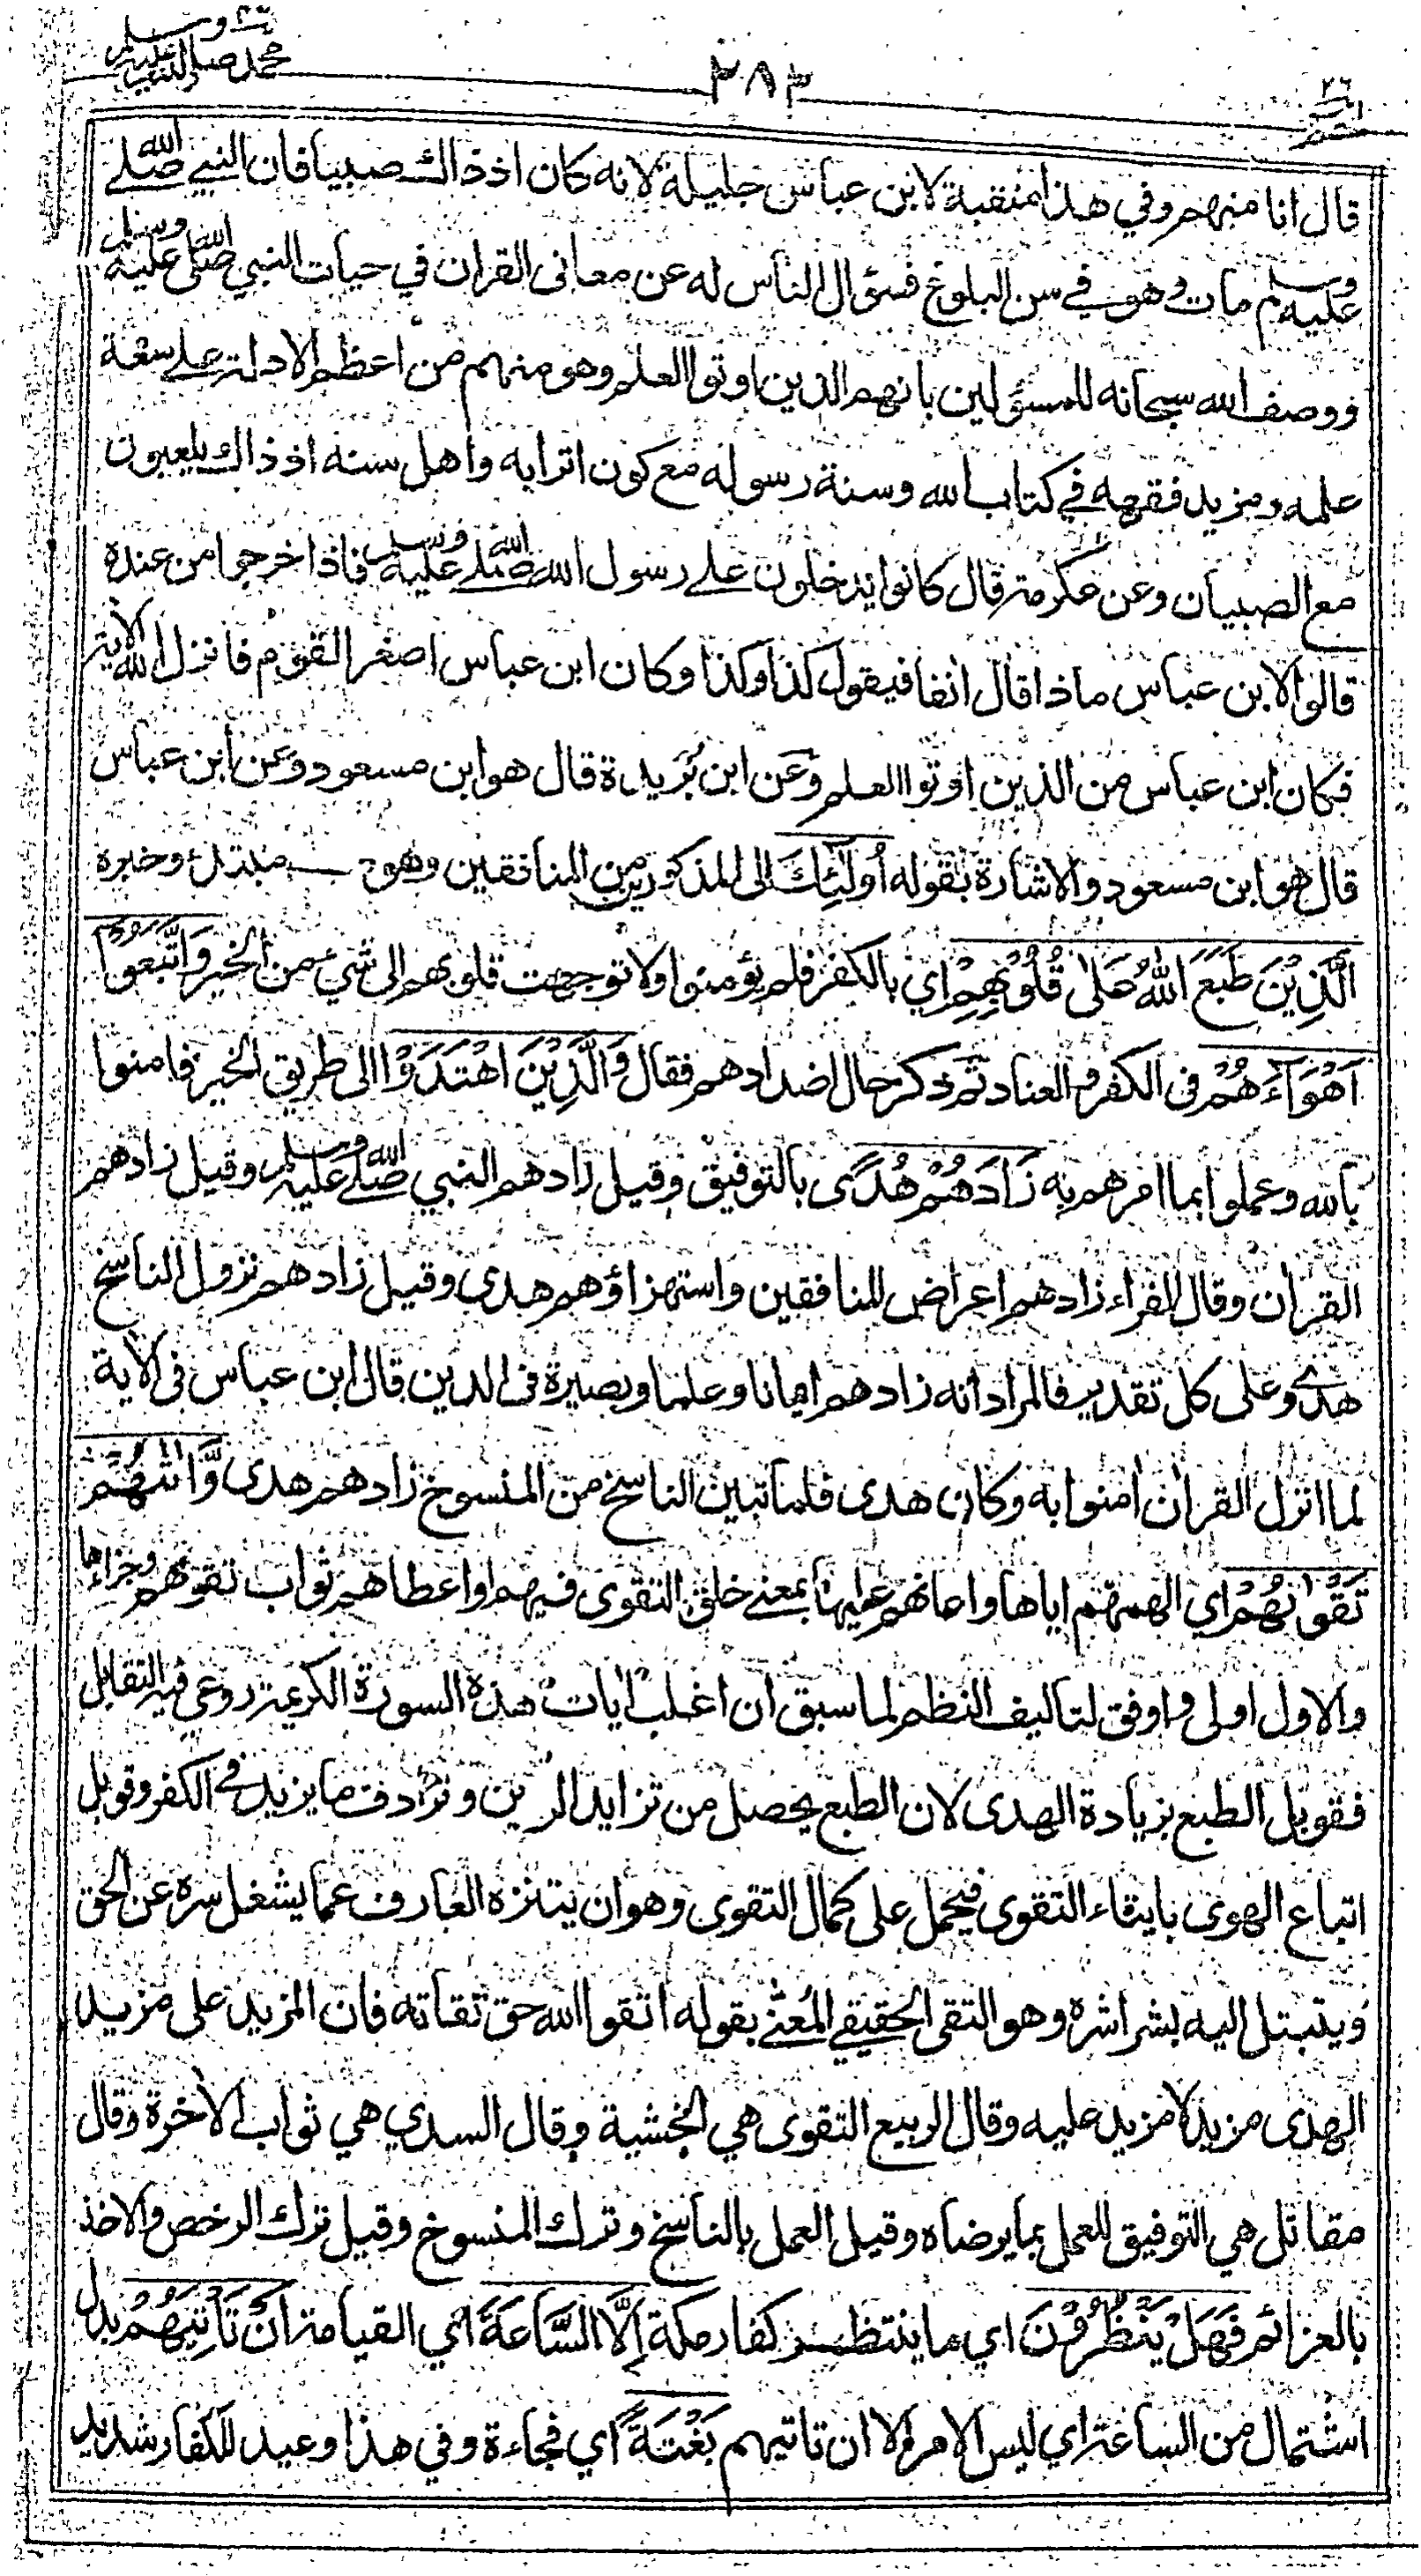 محمد صلى الله عليه وسلم
٢٨٣
٢٦
قال انا منهم وفي هذا منقبة لابن عباس جليلة لانه كان اذ ذاك صبيا فان النبي صلے الله
عليه وسلم مات وهو في سن البلوغ فسؤال الناس له عن معانى القران في حيات النبي صلى الله عليه وسلم
ووصف الله سبحانه للمسؤلين بانهم الذين اوتوا العلم وهو منهم من اعظم الادلة علے سعة
علمه ومزيد فقهه في كتاب الله وسنة رسوله مع كون اترابه واهل سنه اذ ذاك يلعبون
مع الصبيان وعن عكرمة قال كانوا يدخلون علے رسول الله صلے الله عليه وسلم فاذا خرجوا من عنده
قالوا لابن عباس ماذا قال انفا فيقول كذا وكذا وكان ابن عباس اصغر القوم فانزل الله الاية
فكان ابن عباس من الذين اوتوا العلم وعن ابن بريدة قال هو ابن مسعود وعن ابن عباس
قال هو ابن مسعود والاشارة بقوله اُولٰٓئِكَ الى المذكورين من المنافقين وهو مبتدأ وخبره
الَّذِيْنَ طَبَعَ اللّٰهُ عَلٰى قُلُوْبِهِمْ اي بالكفر فلم يؤمنوا ولا توجهت قلوبهم الى شيء من الخير وَاتَّبَعُوْا
اَهْوَآءَهُمْ فى الكفر والعناد ثم ذكر حال اضدادهم فقال وَالَّذِيْنَ اهْتَدَوْا الى طريق الخير فامنوا
بالله وعملوا بما امرهم به زَادَهُمْ هُدًى بالتوفيق وقيل زادهم النبي صلے الله عليه وسلم وقيل زادهم
القران وقال الفراء زادهم اعراض المنافقين واستهزاؤهم هدى وقيل زادهم نزول الناسخ
هدى وعلى كل تقدير فالمراد انه زادهم ايمانا وعلما وبصيرة فى الدين قال ابن عباس فى الاية
لما انزل القران امنوا به وكان هدى فلما تبين الناسخ من المنسوخ زادهم هدى وَّاٰتٰىهُمْ
تَقْوٰىهُمْ اي الهمهم اياها واعانهم عليها بمعنے خلق التقوى فيهم او اعطاهم ثواب تقوٰهم وجزاءها
والاول اولى واوفق لتاليف النظم لما سبق ان اغلب ايات هذه السورة الكريمة روعي فيه التقابل
فقوبل الطبع بزيادة الهدى لان الطبع يحصل من تزايد الرين وترادف ما يزيد فے الكفر وقوبل
اتباع الهوى بايتاء التقوى فيحمل على كمال التقوى وهو ان يتنزه العارف عما يشغل سره عن الحق
ويتبتل اليه بشراشره وهو التقى الحقيقے المُعنے بقوله اتقوا الله حق تقاته فان المزيد على مزيد
الهدى مزيد لا مزيد عليه وقال الربيع التقوى هي الخشية وقال السدي هي ثواب الاخرة وقال
مقاتل هي التوفيق للعمل بما يرضاه وقيل العمل بالناسخ وترك المنسوخ وقيل ترك الرخص والاخذ
بالعزائم فَهَلْ يَنْظُرُوْنَ اي ما ينتظر كفار مكة اِلَّا السَّاعَةَ اي القيامة اَنْ تَاْتِيَهُمْ بدل
اشتمال من الساعة اي ليس الامر الا ان تاتيهم بَغْتَةً اي فجاءة وفي هذا وعيد للكفار شديد